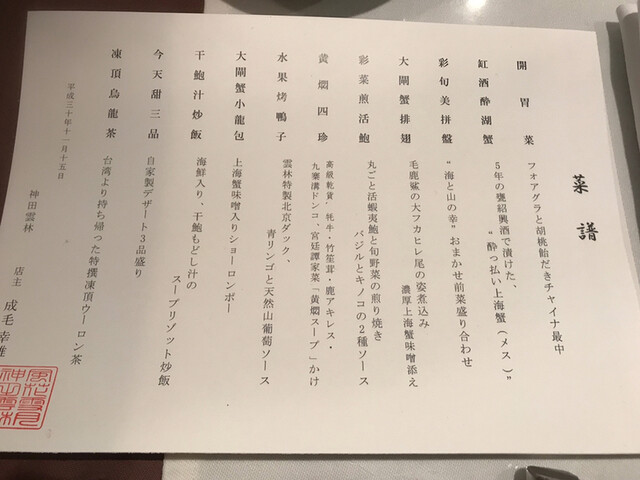 菜譜
開胃菜
フォアグラと胡桃飴だきチャイナ最中
缸酒酔湖蟹
5年の甕紹興酒で漬けた、
“酔っ払い上海蟹(メス)”
彩旬美拼盤
“海と山の幸”おまかせ前菜盛り合わせ
大閘蟹排翅
毛鹿鯊の大フカヒレ尾の姿煮込み
濃厚上海蟹味噌添え
彩菜煎活鮑
丸ごと活蝦夷鮑と旬野菜の煎り焼き
バジルとキノコの2種ソース
黄燜四珍
高級乾貨、牦牛・竹笙茸・鹿アキレス・
九寨溝ドンコ、宮廷譚家菜「黄燜スープ」かけ
水果烤鴨子
雲林特製北京ダック、
青リンゴと天然山葡萄ソース
大閘蟹小龍包
上海蟹味噌入りショーロンポー
干鮑汁炒飯
海鮮入り、干鮑もどし汁の
スープリゾット炒飯
今天甜三品
自家製デザート3品盛り
凍頂烏龍茶
台湾より持ち帰った特撰凍頂ウーロン茶
平成三十年十一月十五日
神田雲林
店主 成毛幸雄